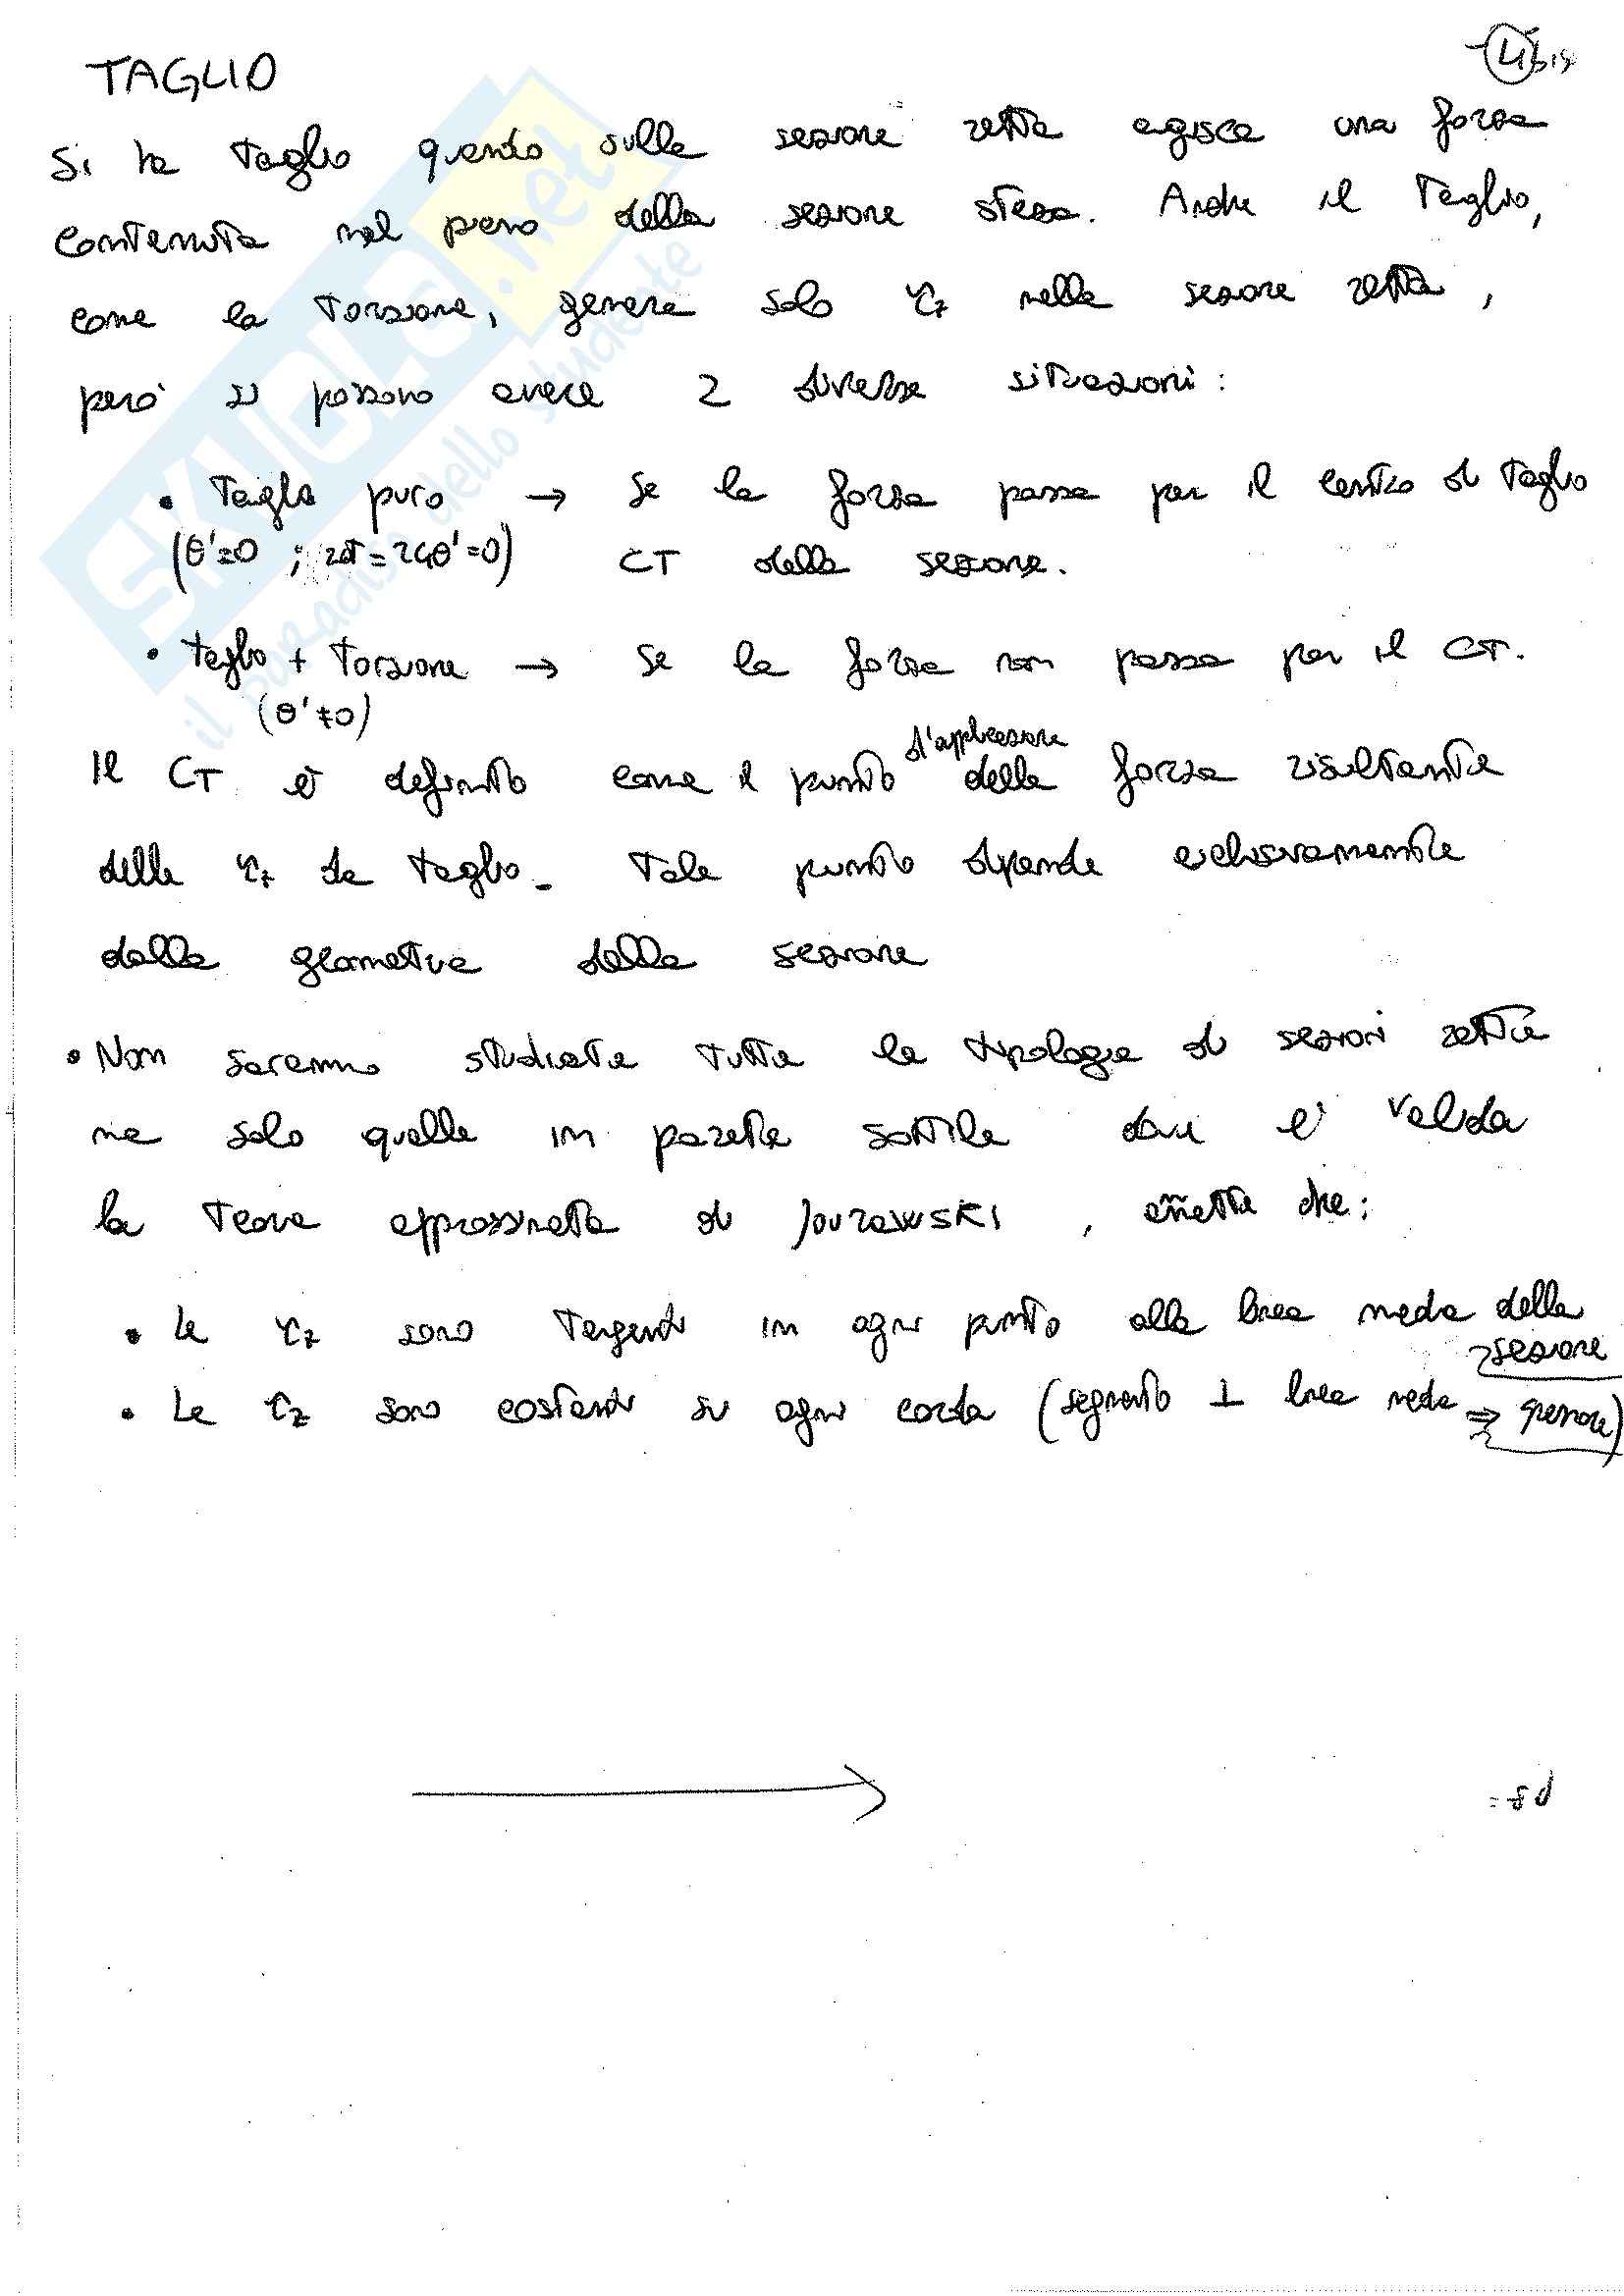 TAGLIO
Si ha taglio quando sulla sezione retta agisce una forza
contenuta nel piano della sezione stessa. Anche il taglio,
come la torsione, genera solo τz nella sezione retta,
però si possono avere 2 diverse situazioni:
• Taglio puro → se la forza passa per il centro di taglio
(θ'=0 ; = 2Gθ'=0) CT della sezione.
• taglio + torsione → se la forza non passa per il CT.
(θ'≠0)
d'applicazione
Il CT è definito come il punto della forza risultante
delle τz da taglio. Tale punto dipende esclusivamente
dalla geometria della sezione
• Non saranno studiate tutte le tipologie di sezioni rette
ma solo quelle in parete sottile dove è valida
la teoria approssimata di Jourawski, ammette che:
• Le τz sono tangenti in ogni punto alla linea media della
sezione
• Le τz sono costanti su ogni corda (segmento ⊥ linea media ⇒ spessore)
SKUOLA.net
il paradiso dello studente